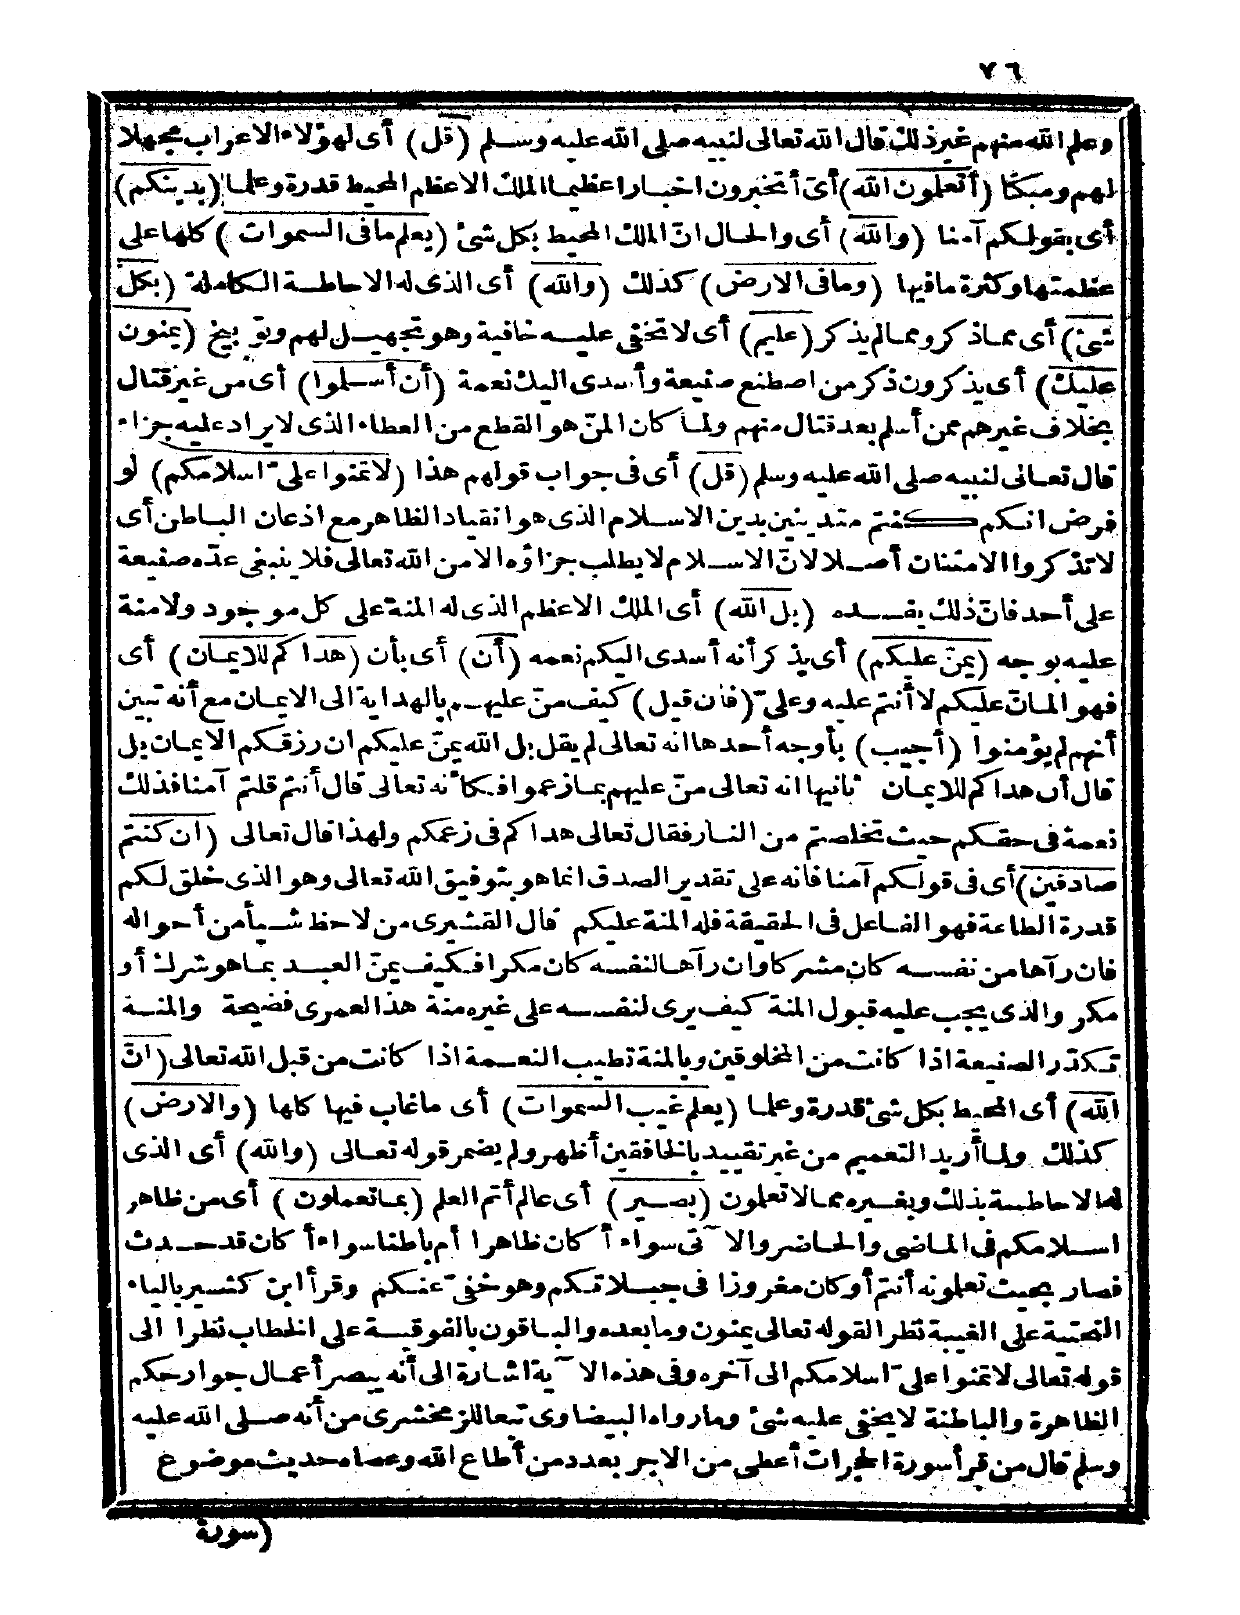 ٧٦
وعلم الله منهم غير ذلك قال الله تعالى لنبيه صلى الله عليه وسلم (قل) أى لهؤلاء الاعراب مجهلا
لهم ومبكتا (أتعلمون الله) أى أتخبرون اخبارا عظيما الملك الاعظم المحيط قدرة وعلما (بدينكم)
أى بقولكم آمنا (والله) أى والحال انّ الملك المحيط بكل شئ (يعلم مافى السموات) كلها على
عظمتها وكثرة مافيها (ومافى الارض) كذلك (والله) أى الذى له الاحاطة الكاملة (بكل
شئ) أى مماذكر ومما لم يذكر (عليم) أى لا تخفى عليه خافية وهو تجهيل لهم وتوبيخ (يمنون
عليك) أى يذكرون ذكر من اصطنع صنيعة وأسدى اليك نعمة (أن أسلموا) أى من غير قتال
بخلاف غيرهم ممن أسلم بعد قتال منهم ولما كان المنّ هو القطع من العطاء الذى لا يراد عليه جزاء
قال تعالى لنبيه صلى الله عليه وسلم (قل) أى فى جواب قولهم هذا (لا تمنوا علىّ اسلامكم) لو
فرض انكم كنتم متدينين بدين الاسلام الذى هو انقياد الظاهر مع اذعان الباطن أى
لا تذكروا الامتنان أصلا لانّ الاسلام لا يطلب جزاؤه الا من الله تعالى فلا ينبغى عدّه صنيعة
على أحد فانّ ذلك يفسده (بل الله) أى الملك الاعظم الذى له المنة على كل موجود ولا منة
عليه بوجه (يمنّ عليكم) أى يذكر أنه أسدى اليكم نعمه (أن) أى بأن (هداكم للايمان) أى
فهو المانّ عليكم لا أنتم عليه وعلىّ (فان قيل) كيف منّ عليهم بالهداية الى الايمان مع أنه تبين
أنهم لم يؤمنوا (أجيب) بأوجه أحدها انه تعالى لم يقل بل الله يمنّ عليكم ان رزقكم الايمان بل
قال أن هداكم للايمان ثانيها انه تعالى منّ عليهم بما زعموا فكانه تعالى قال أنتم قلتم آمنا فذلك
نعمة فى حقكم حيث تخلصتم من النار فقال تعالى هداكم فى زعمكم ولهذا قال تعالى (ان كنتم
صادقين) أى فى قولكم آمنا فانه على تقدير الصدق انما هو بتوفيق الله تعالى وهو الذى خلق لكم
قدرة الطاعة فهو الفاعل فى الحقيقة فله المنة عليكم قال القشيرى من لاحظ شيأ من أحواله
فان رآها من نفسه كان مشركا وان رآها لنفسه كان مكرا فكيف يمنّ العبد بما هو شرك أو
مكر والذى يجب عليه قبول المنة كيف يرى لنفسه على غيره منة هذا لعمرى فضيحة والمنة
تكدّر الصنيعة اذا كانت من المخلوقين وبالمنة تطيب النعمة اذا كانت من قبل الله تعالى (انّ
الله) أى المحيط بكل شئ قدرة وعلما (يعلم غيب السموات) أى ماغاب فيها كلها (والارض)
كذلك ولما أريد التعميم من غير تقييد بالخافقين أظهر ولم يضمر قوله تعالى (والله) أى الذى
له الاحاطة بذلك وبغيره مما لا تعلمون (بصير) أى عالم أتم العلم (بما تعملون) أى من ظاهر
اسلامكم فى الماضى والحاضر والآتى سواء أكان ظاهرا أم باطنا سواء أكان قد حدث
فصار بحيث تعلمونه أنتم أو كان مغروزا فى جبلاتكم وهو خفىّ عنكم وقرأ ابن كثير بالياء
التحتية على الغيبة نظرا لقوله تعالى يمنون وما بعده والباقون بالفوقية على الخطاب نظرا الى
قوله تعالى لا تمنوا علىّ اسلامكم الى آخره وفى هذه الآية اشارة الى أنه يبصر أعمال جوارحكم
الظاهرة والباطنة لا يخفى عليه شئ ومارواه البيضاوى تبعا للزمخشرى من أنه صلى الله عليه
وسلم قال من قرأ سورة الحجرات أعطى من الاجر بعدد من أطاع الله وعصاه حديث موضوع
(سورة